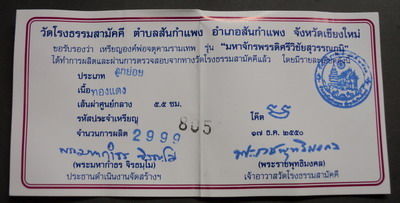 วัดโรงธรรมสามัคคี ตำบลสันกำแพง อำเภอสันกำแพง จังหวัดเชียงใหม่
ขอรับรองว่า เหรียญองค์พ่อจตุคามรามเทพ รุ่น "มหาจักรพรรดิศรีวิชัยสุวรรณภูมิ"
ได้ทำการผลิตและผ่านการตรวจสอบจากทางวัดโรงธรรมสามัคคีแล้ว โดยมีรายละเอียดดังนี้
ประเภท ลูกย่อย
เนื้อ ทองแดง
เส้นผ่าศูนย์กลาง ๕.๕ ซม.
รหัสประจำเหรียญ 805 โค๊ต
จำนวนการผลิต 2999 ๑๗ ธ.ค. ๒๕๕๐
(พระมหากำธร จิรธมฺโม) (พระราชพุทธิมงคล)
ประธานดำเนินงานจัดสร้างฯ เจ้าอาวาสวัดโรงธรรมสามัคคี